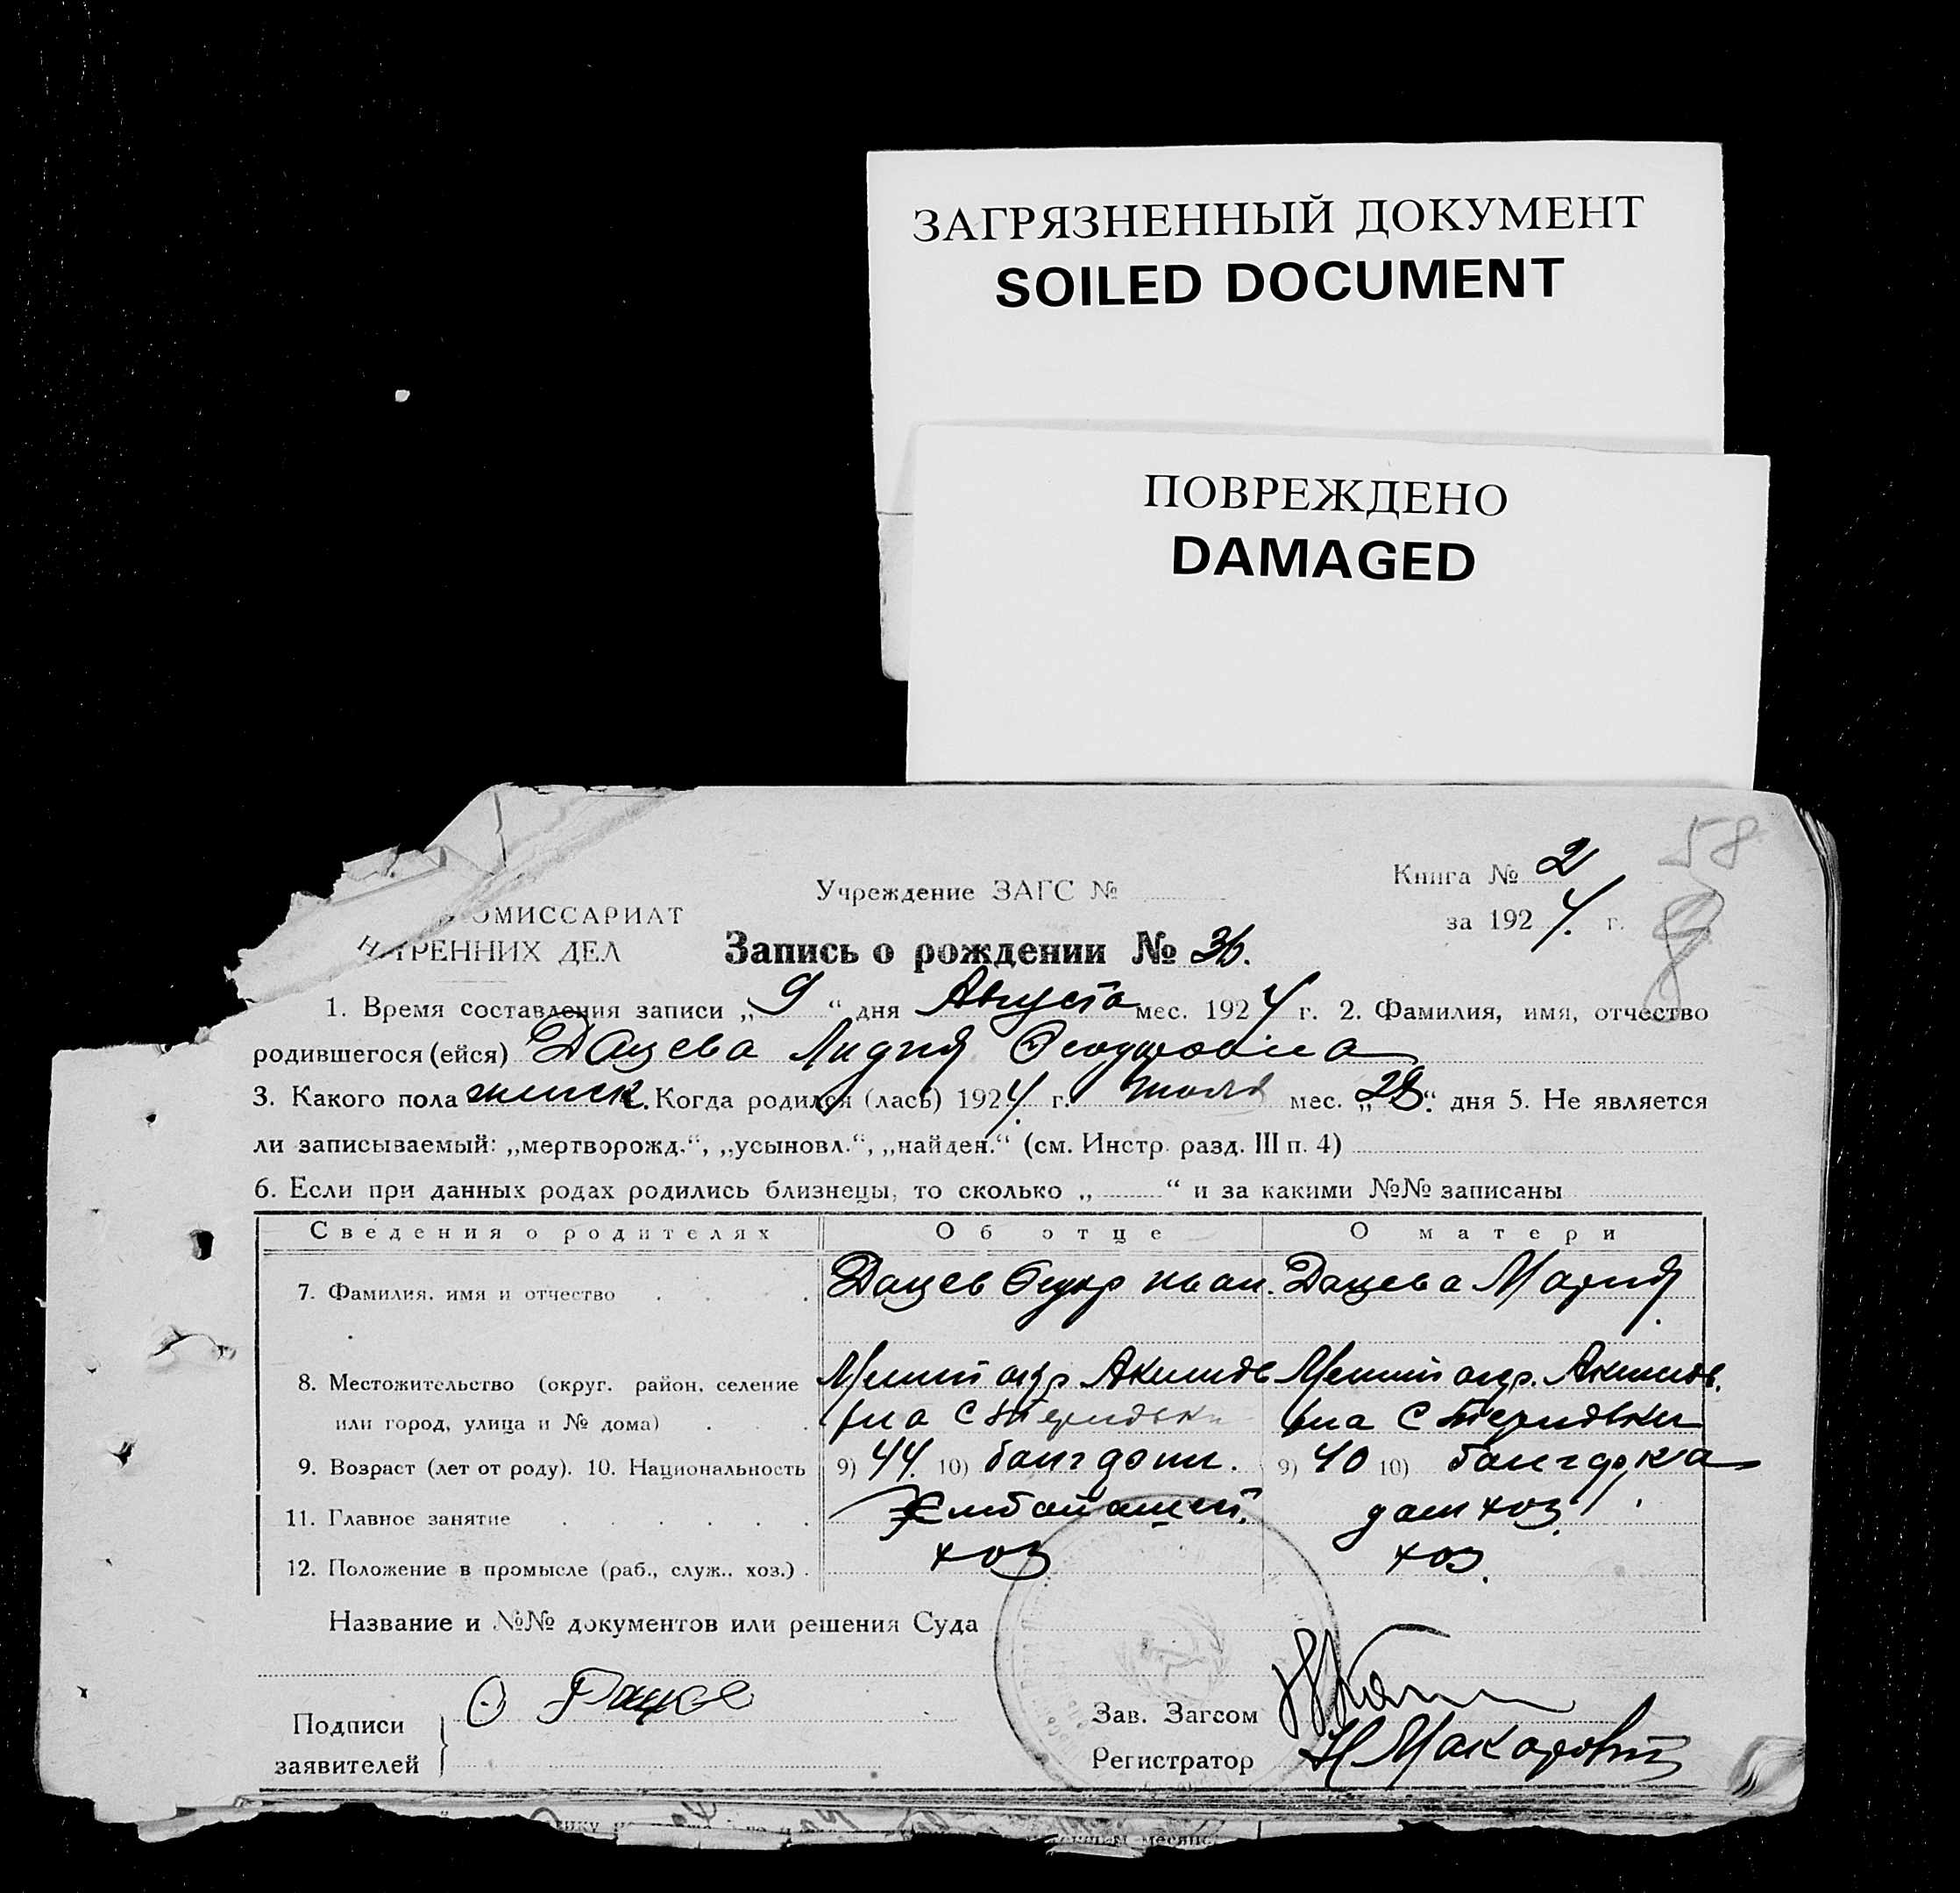 ЗАГРЯЗНЕННЫЙ ДОКУМЕНТ
SOILED DOCUMENT
ПОВРЕЖДЕНО
DAMAGED
58
Книга № 2
Учреждение ЗАГС №
ОМИССАРИАТ
за 1924 г.
ТРЕННИХ ДЕЛ
Запись о рождении № 36.
1. Время составления записи „9“ дня Августа мес. 1924 г. 2. Фамилия, имя, отчество
родившегося (ейся) Дацева Лидия Феодоровна
3. Какого пола женск. Когда родился (лась) 1924 г. июля мес. „28“ дня 5. Не является
ли записываемый: „мертворожд.“, „усыновл.“, „найден.“ (см. Инстр. разд. III п. 4)
6. Если при данных родах родились близнецы, то сколько „ “ и за какими №№ записаны
Сведения о родителях Об отце О матери
7. Фамилия, имя и отчество Дацев Федор Иван. Дацева Мария
8. Местожительство (округ. район, селение Мелит окр. Акимов Мелит окр. Акимов.
или город, улица и № дома) р-на С р-на С
9. Возраст (лет от роду). 10. Национальность 9) 44. 10) болгарин. 9) 40 10) болгарка
11. Главное занятие Хлебопашест. дом хоз.
12. Положение в промысле (раб., служ., хоз.) хоз хоз.
Название и №№ документов или решения Суда
Подписи
заявителей
Зав. Загсом
Регистратор Н Макаров